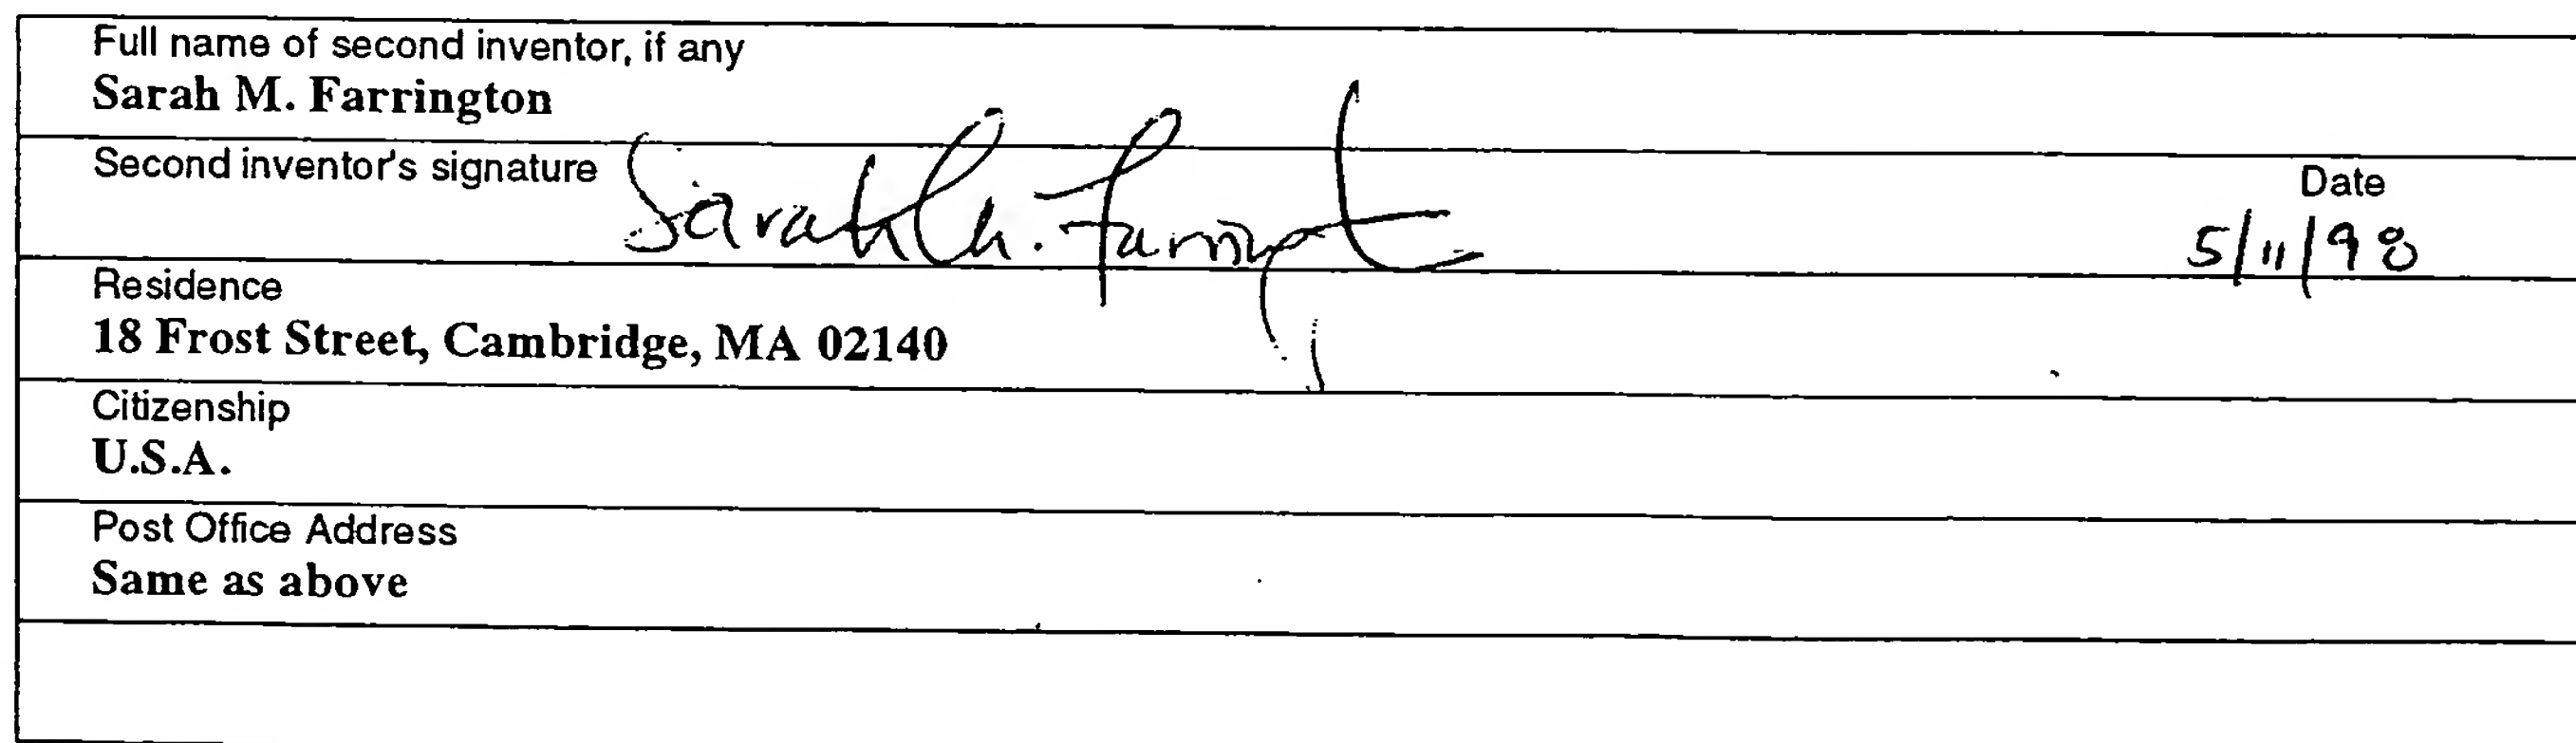 Full name of second inventor, if any
Sarah M. Farrington
Second inventor's signature Sarah M. Farrington
Date
5/11/98
Residence
18 Frost Street, Cambridge, MA 02140
Citizenship
U.S.A.
Post Office Address
Same as above